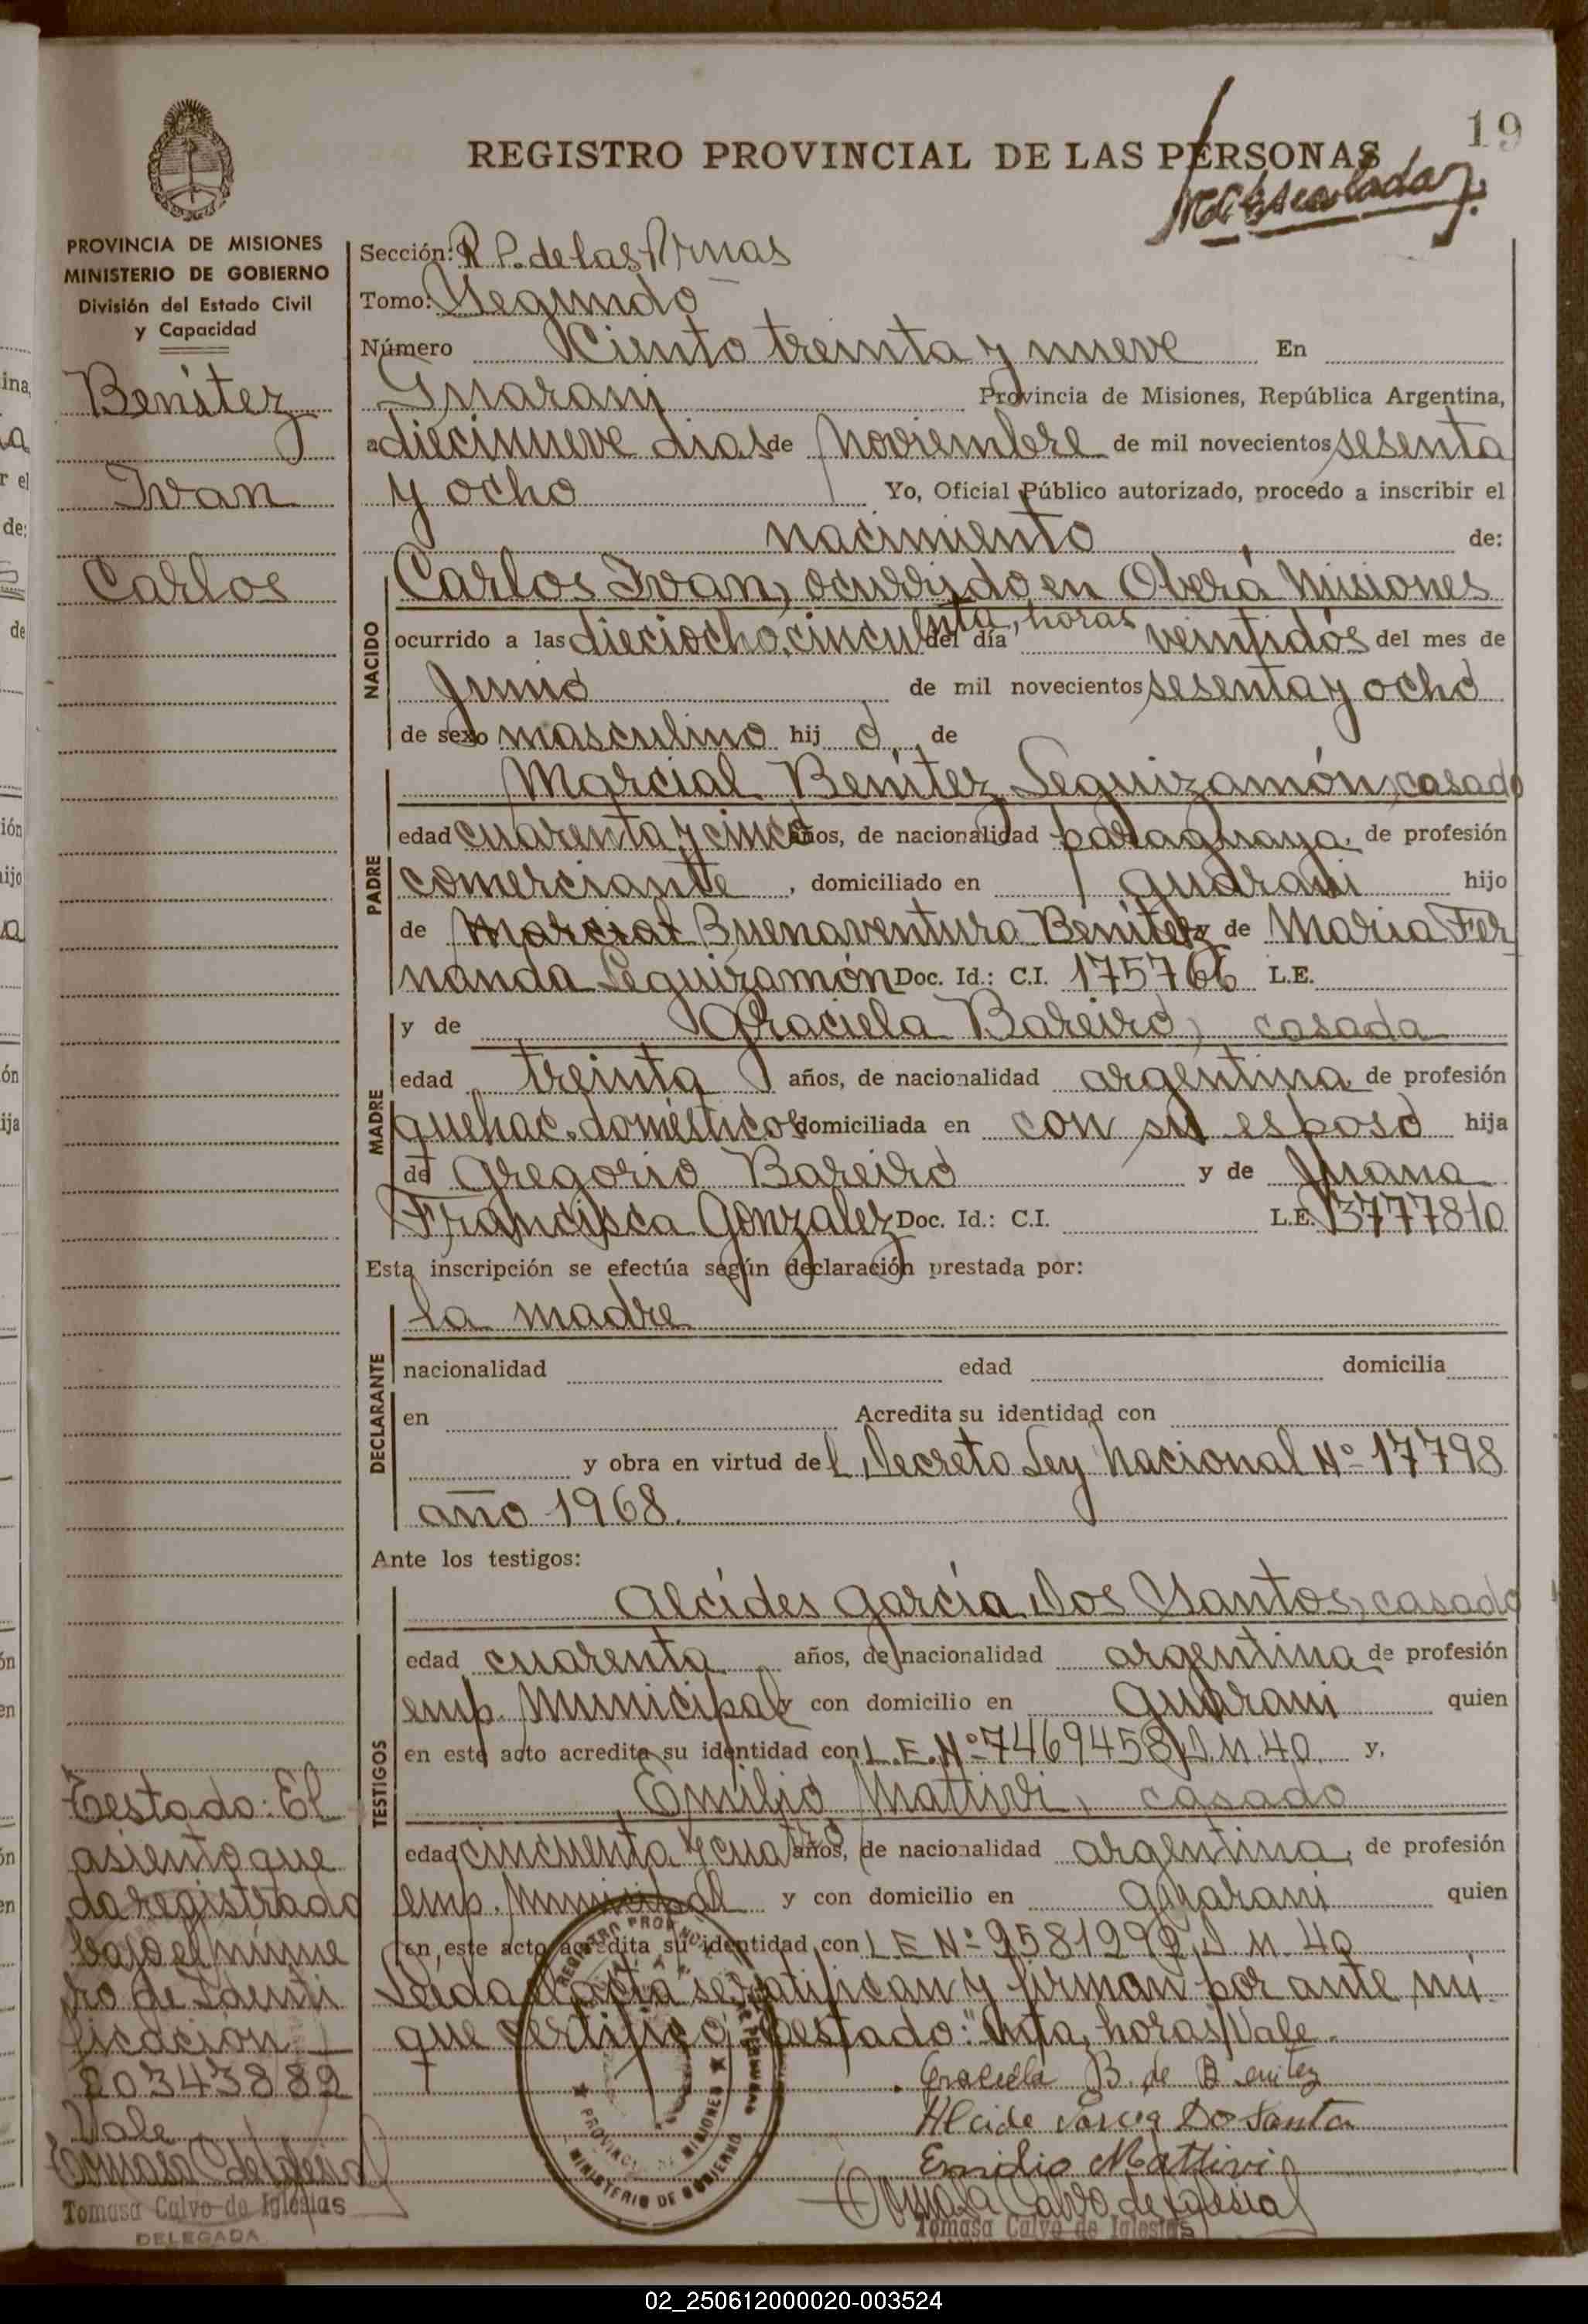 19
REGISTRO PROVINCIAL DE LAS PERSONAS
PROVINCIA DE MISIONES
MINISTERIO DE GOBIERNO
División del Estado Civil
y Capacidad
Benítez
Ivan
Carlos
Sección: R. P. de las Prnas
Tomo: Segundo
Número Ciento treinta y nueve En
Guarani Provincia de Misiones, República Argentina,
a diecinueve dias de Noviembre de mil novecientos sesenta
y ocho Yo, Oficial Público autorizado, procedo a inscribir el
nacimiento de:
NACIDO
Carlos Ivan, ocurrido en Oberá Misiones
ocurrido a las dieciocho, cincuenta, horas del día veintidós del mes de
Junio de mil novecientos sesenta y ocho
de sexo masculino hij o de
PADRE
Marcial Benítez Leguizamón, casado
edad cuarenta y cinco años, de nacionalidad paraguaya, de profesión
comerciante, domiciliado en Guarani hijo
de Marcial Buenaventura Benítez y de Maria Fer
nanda Leguizamón Doc. Id.: C.I. 175766 L.E.
MADRE
y de Graciela Bareiro, casada
edad treinta años, de nacionalidad argentina de profesión
quehac. domésticos domiciliada en con su esposo hija
de Gregorio Bareiro y de Juana
Francisca Gonzalez Doc. Id.: C.I. L.E. 3777810
Esta inscripción se efectúa según declaración prestada por:
DECLARANTE
la madre
nacionalidad edad domicilia
en Acredita su identidad con
y obra en virtud de l Decreto Ley Nacional Nº 17798
año 1968.
Ante los testigos:
TESTIGOS
Alcídes García Dos Santos, casado
edad cuarenta años, de nacionalidad argentina de profesión
emp. Municipal y con domicilio en Guarani quien
en este acto acredita su identidad con L.E. Nº 7469458 D M. 40 y,
Emilio Mattivi, casado
edad cincuenta y cuatro años, de nacionalidad argentina, de profesión
emp. Municipal y con domicilio en Guarani quien
en este acto acredita su identidad con L E Nº 9581292, D M. 40
Leída el acta se ratifican y firman por ante mi
que certifico, testado: "nta, horas, Vale.
Graciela B. de Benitez
Alcide Garcia Do Santo
Emilio Mattivi
Tomasa Calvo de Iglesias
Tomasa Calvo de Iglesias
Testado: El
asiento que
da registrado
bajo el núme
ro de Identi
ficación
20343882
Vale
Tomasa C de Iglesias
Tomasa Calvo de Iglesias
DELEGADA
PROVINCIA DE MISIONES
MINISTERIO DE GOBIERNO
02_250612000020-003524